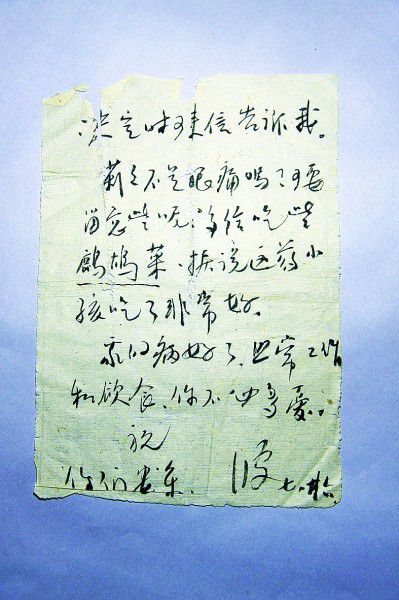 决定时可来信告诉我。
莉莉不是眼痛吗?可要
留意些呀,多给吃些
鹧鸪菜,据说这药小
孩吃了非常好。
我的病好了,照常工作
和饮食,你不必多憂。
祝
你们安乐. 波 七.廿六